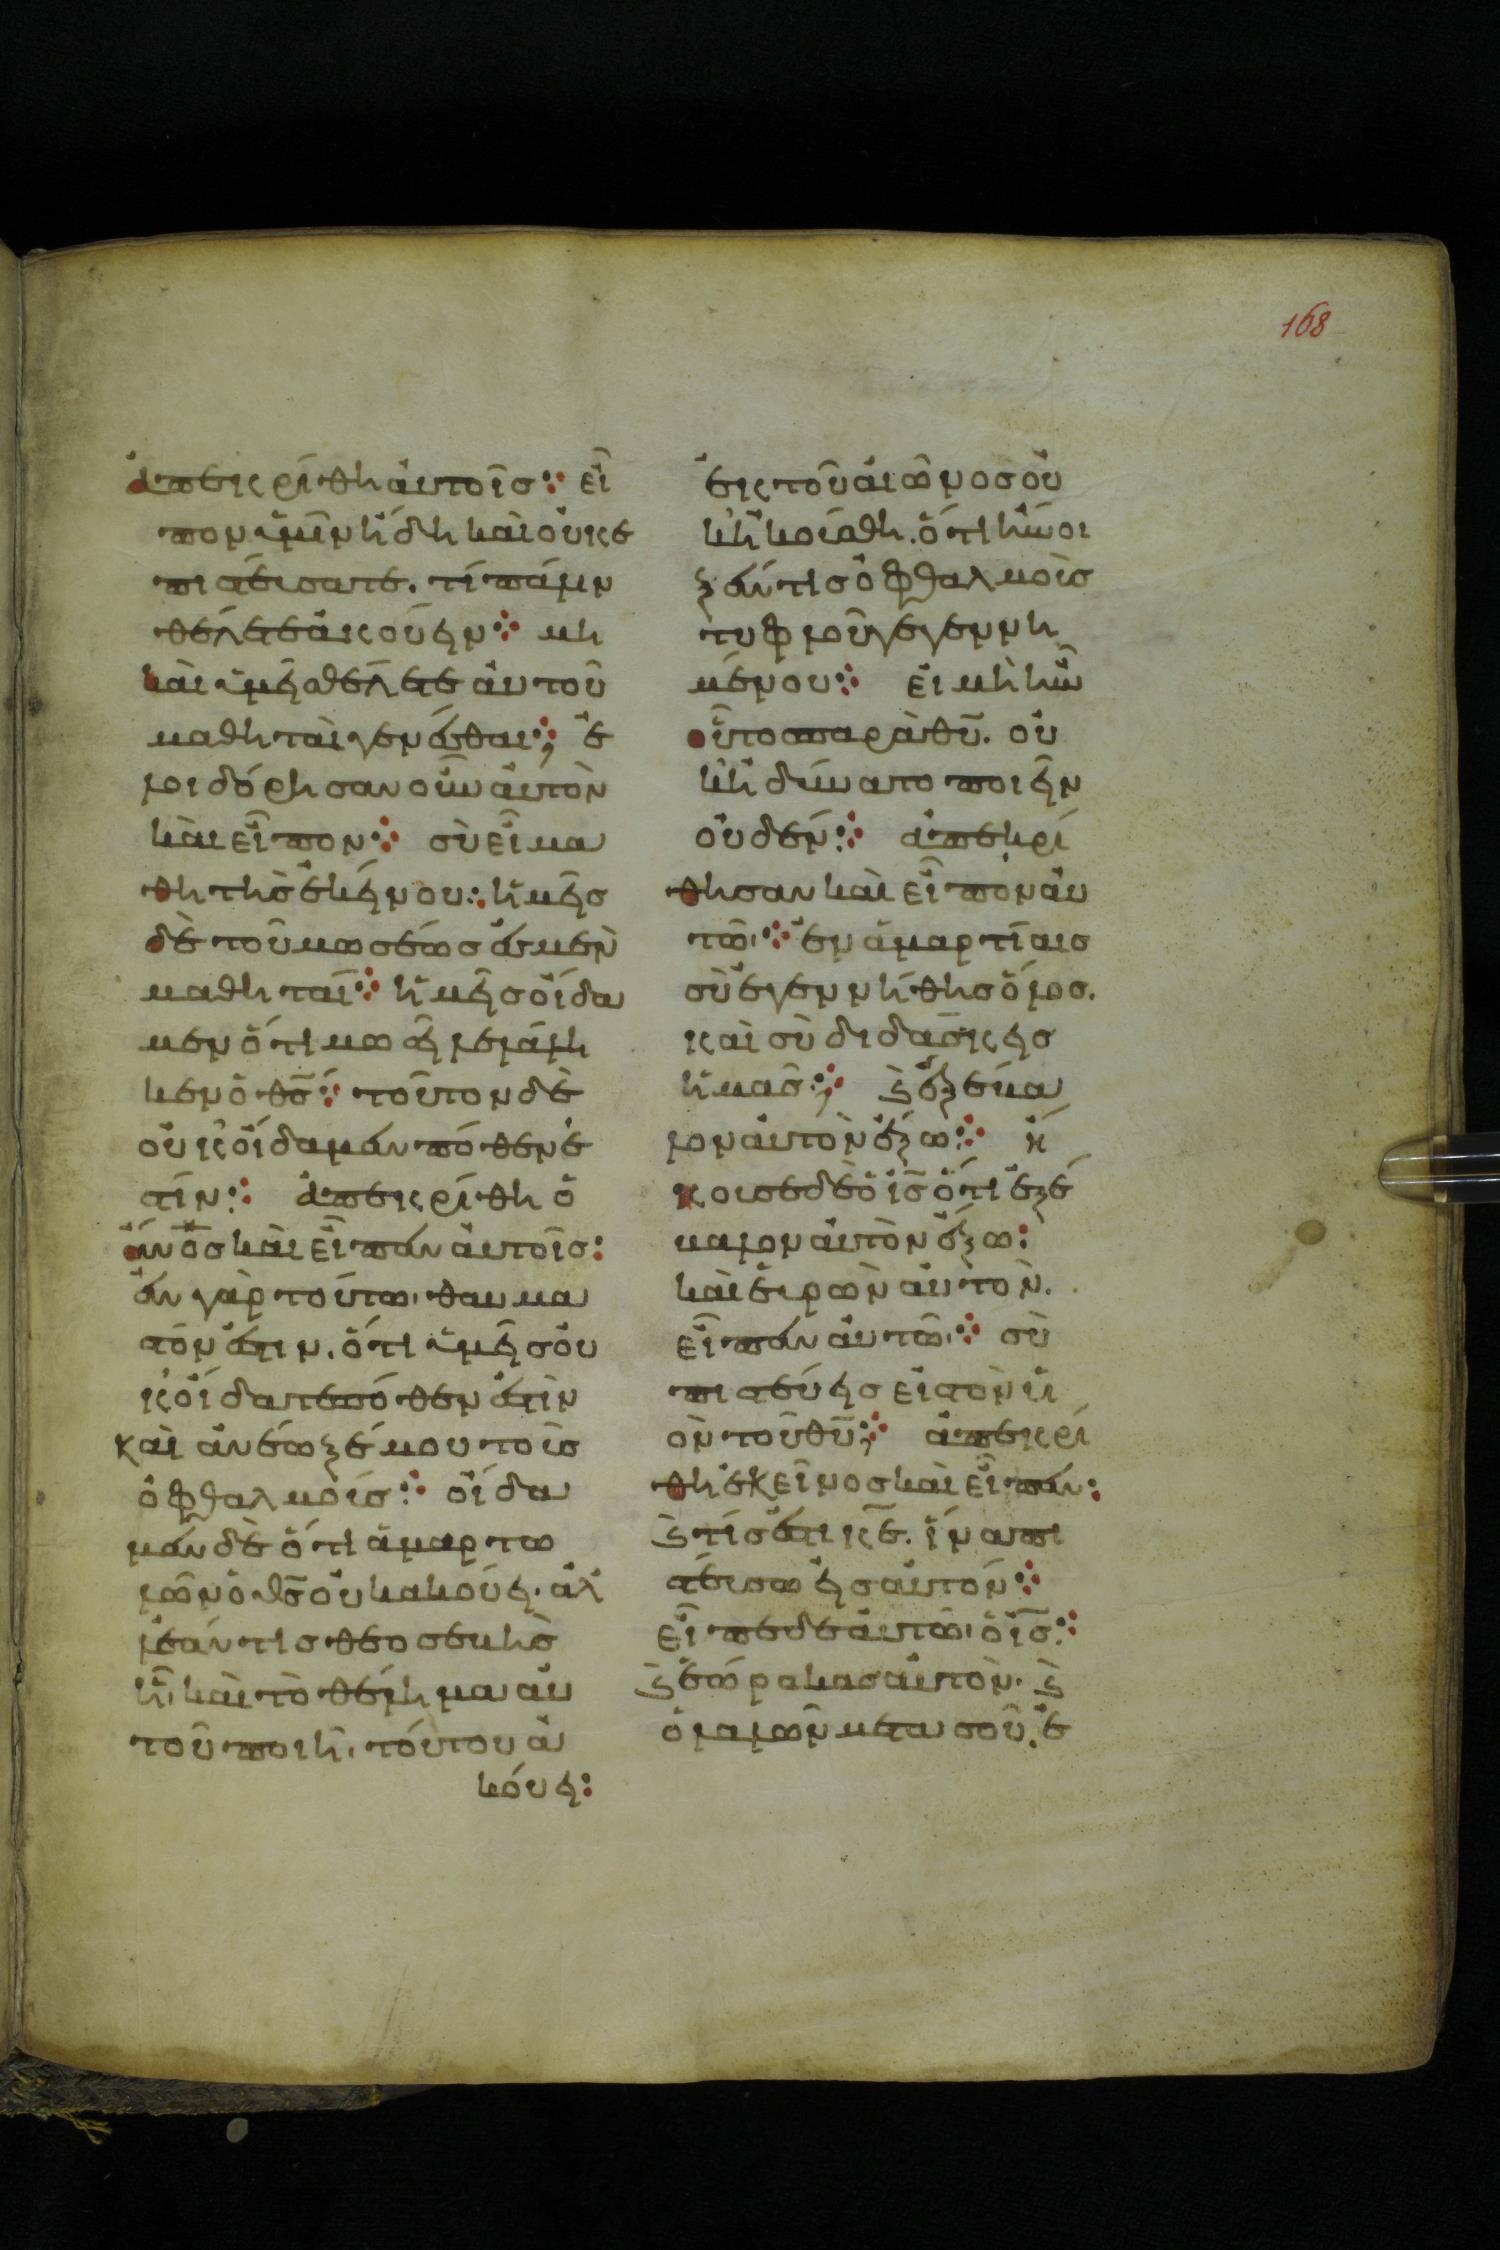 168
ἀπεκρίθη ἀυτοῖσ: εἶ
πον ὑμῖν ἤδη καὶ οὐκ ἐ
πιστεύσατε. τί πάλιν
θέλετε ἀκούειν: μὴ
καὶ ὑμεῖσ θέλετε ἀυτοῦ
μαθηταὶ γενέσθαι; ἐ
λοιδόρησαν οὖν ἀυτὸν
καὶ εἶπον: σὺ εἶ μα
θητὴσ ἐκείνου: ἡμεῖσ
δὲ τοῦ μωσέωσ ἐσμὲν
μαθηταῖ: ἡμεῖσ οἴδα
μεν ὅτι μωσῆ λελάλη
κεν ὁ θσ: τοῦτον δὲ
οὐκ οἴδαμεν πόθεν ἐ
στίν: ἀπεκρίθη ὁ
ἄνοσ καὶ εἶπεν ἀυτοῖσ:
ἐν γὰρ τούτω θαυμα
τόν ἐστιν. ὅτι ὑμεῖσ οὐ
κ οἴδατε πόθεν ἐστὶν
καὶ ἀνέωξέ μου τοὺσ
ὀφθαλμοίσ: οἴδα
μεν δὲ ὅτι ἁμαρτω
λῶν ὁ θσ οὐκ ακούει. ἀλ
λεάν τισ θεοσεβὴσ
ῆ καὶ τὸ θέλημα αὐ
τοῦ ποιῆ. τούτου ἀ
κούει:
ἐκ τοῦ αἰῶνοσ οὐ
κ ἠκούσθη. ὅτι ἤνοι
ξέν τισ ὀφθαλμοὺσ
τυφλοῦ γεγεννη
μένου: εἰ μὴ ἦν
οὗτοσ παρὰ θυ. οὐ
κ ἠδύνατο ποιεῖν
οὐδέν: ἀπεκρί
θησαν καὶ εἶπον ἀυ
τῶ: ἐν ἁμαρτίαισ
σὺ ἐγεννήθησ ὅλοσ.
καὶ σὺ διδάσκεισ
ἡμασ; ϗ ἐξέβα
λον ἀυτὸν ἔξω: ἤ
κουσε δὲ ὁ ἰσ ὅτι ἐξέ
βαλον ἀυτὸν ἔξω:
καὶ ἑυρὼν ἀυτὸν.
εἶπεν ἀυτῶ: σὺ
πιστέυεισ εἰσ τὸν ὑι
ὸν τοῦ θυ; ἀπεκρί
θη ἐκεῖνοσ καὶ εἶπεν:
ϗ τίσ ἐστι κε. ἵνα πι
στέυσω εἰσ αὐτόν:
εἶπε δε ἀυτῶ ὁ ισ:
ϗ ἑώρακασ αυτὸν. ϗ
ὁ λαλῶν μετα σοῦ. ἐ